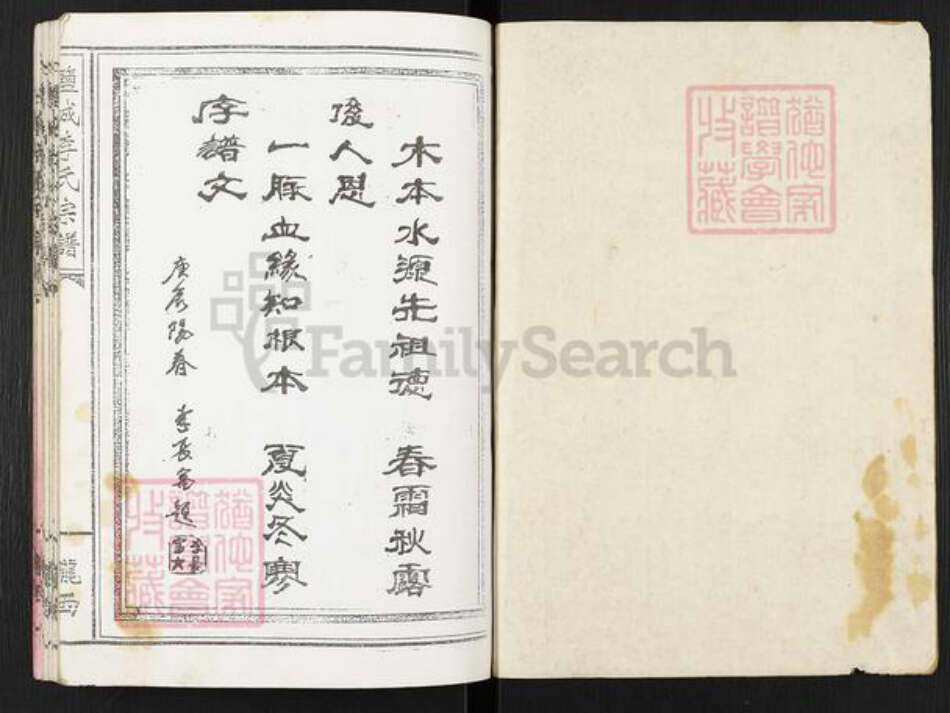 猶他家
譜學會
收藏
木本水源先祖德 春霜秋露
後人思
一脈血緣知根本 夏炎冬寒
字譜文
庚辰陽春 李長富題
猶他家
譜學會
收藏
城李氏宗譜
隴西
FamilySearch